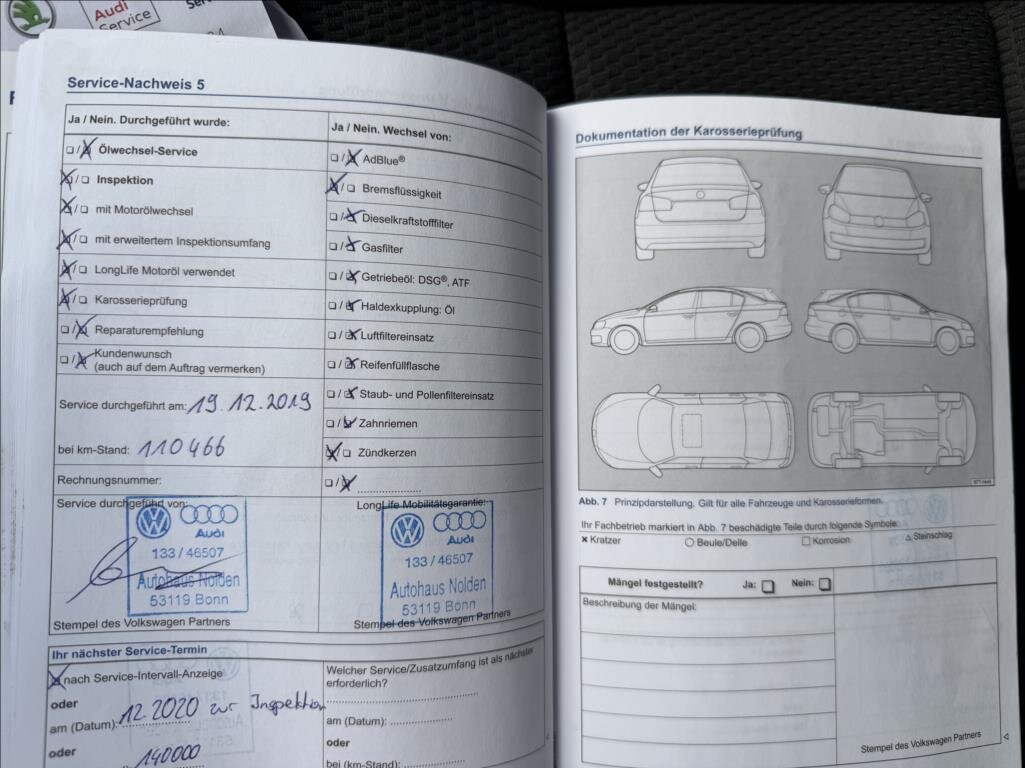 Audi
Service
Service-Nachweis 5
Ja / Nein. Durchgeführt wurde:
❏/❏ Ölwechsel-Service
❏/❏ Inspektion
❏/❏ mit Motorölwechsel
❏/❏ mit erweitertem Inspektionsumfang
❏/❏ LongLife Motoröl verwendet
❏/❏ Karosserieprüfung
❏/❏ Reparaturempfehlung
❏/❏ Kundenwunsch
(auch auf dem Auftrag vermerken)
Service durchgeführt am: 19.12.2019
bei km-Stand: 110466
Rechnungsnummer:
Service durchgeführt von:
Audi
133 / 46507
Autohaus Nolden
53119 Bonn
Stempel des Volkswagen Partners
Ja / Nein. Wechsel von:
❏/❏ AdBlue®
❏/❏ Bremsflüssigkeit
❏/❏ Dieselkraftstofffilter
❏/❏ Gasfilter
❏/❏ Getriebeöl: DSG®, ATF
❏/❏ Haldexkupplung: Öl
❏/❏ Luftfiltereinsatz
❏/❏ Reifenfüllflasche
❏/❏ Staub- und Pollenfiltereinsatz
❏/❏ Zahnriemen
❏/❏ Zündkerzen
❏/❏ ....................
LongLife Mobilitätsgarantie:
Audi
133 / 46507
Autohaus Nolden
53119 Bonn
Stempel des Volkswagen Partners
Ihr nächster Service-Termin
nach Service-Intervall-Anzeige
oder
am (Datum): 12.2020 zur Inspektion
oder
140000
Welcher Service/Zusatzumfang ist als nächster
erforderlich?
am (Datum): ....................
oder
bei (km-Stand): ....................
Dokumentation der Karosserieprüfung
Abb. 7 Prinzipdarstellung. Gilt für alle Fahrzeuge und Karosserieformen.
Ihr Fachbetrieb markiert in Abb. 7 beschädigte Teile durch folgende Symbole:
× Kratzer ○ Beule/Delle □ Korrosion △ Steinschlag
Mängel festgestellt? Ja: ❏ Nein: ❏
Beschreibung der Mängel:
Stempel des Volkswagen Partners